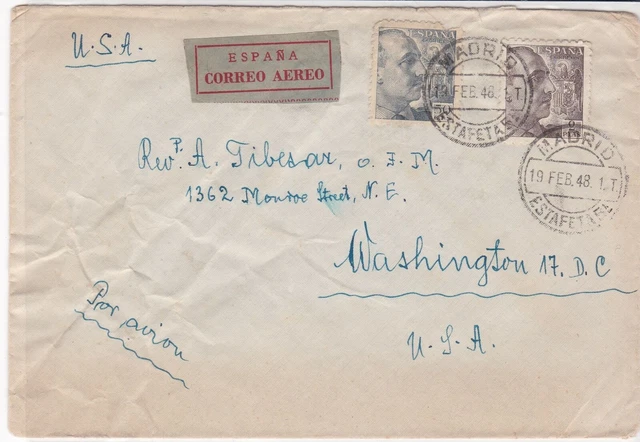 U.S.A.
ESPAÑA
CORREO AEREO
ESPAÑA
ESPAÑA
MADRID
19 FEB. 48. 1. T.
ESTAFETA
MADRID
19 FEB. 48. 1. T.
ESTAFETA
Rev. P. A. Tibesar, O. F. M.
1362 Monroe Street, N. E.
Washington 17. D. C
U. S. A.
Por avion